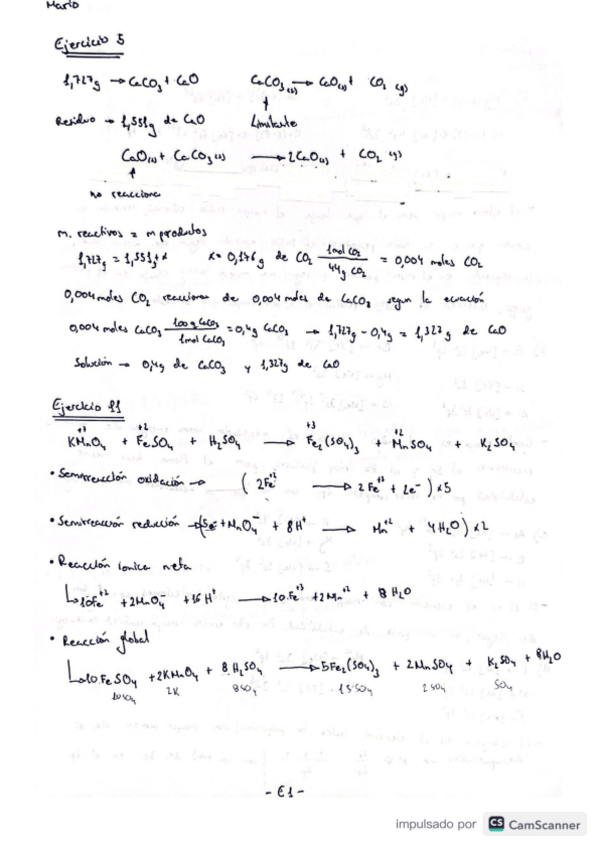 Mario
Ejercicio 5
1,727g → CaCO₃ + CaO CaCO₃(s) → CaO(s) + CO₂ (g)
Residuo → 1,551g de CaO Limitante
CaO(s) + CaCO₃(s) → 2CaO(s) + CO₂ (g)
no reacciona
m. reactivos = m productos
1,727g = 1,551g + x x = 0,176 g de CO₂ 1mol CO₂ / 44g CO₂ = 0,004 moles CO₂
0,004 moles CO₂ reaccionan de 0,004 moles de CaCO₃ segun la ecuación
0,004 moles CaCO₃ 100g CaCO₃ / 1mol CaCO₃ = 0,4g CaCO₃ → 1,727g - 0,4g = 1,327g de CaO
Solución → 0,4g de CaCO₃ y 1,327g de CaO
Ejercicio 11
+7 +2 +3 +2
KMnO₄ + FeSO₄ + H₂SO₄ → Fe₂(SO₄)₃ + MnSO₄ + K₂SO₄
• Semirreacción oxidación → (2Fe⁺² → 2Fe⁺³ + 2e⁻) x5
• Semirreacción reducción → (5e⁻ + MnO₄⁻ + 8H⁺ → Mn⁺² + 4H₂O) x2
• Reacción ionica neta
10Fe⁺² + 2MnO₄⁻ + 16H⁺ → 10Fe⁺³ + 2Mn⁺² + 8H₂O
• Reacción global
10FeSO₄ + 2KMnO₄ + 8H₂SO₄ → 5Fe₂(SO₄)₃ + 2MnSO₄ + K₂SO₄ + 8H₂O
10SO₄ 2K 8SO₄ 15SO₄ 2SO₄ SO₄
- E1 -
impulsado por CS CamScanner